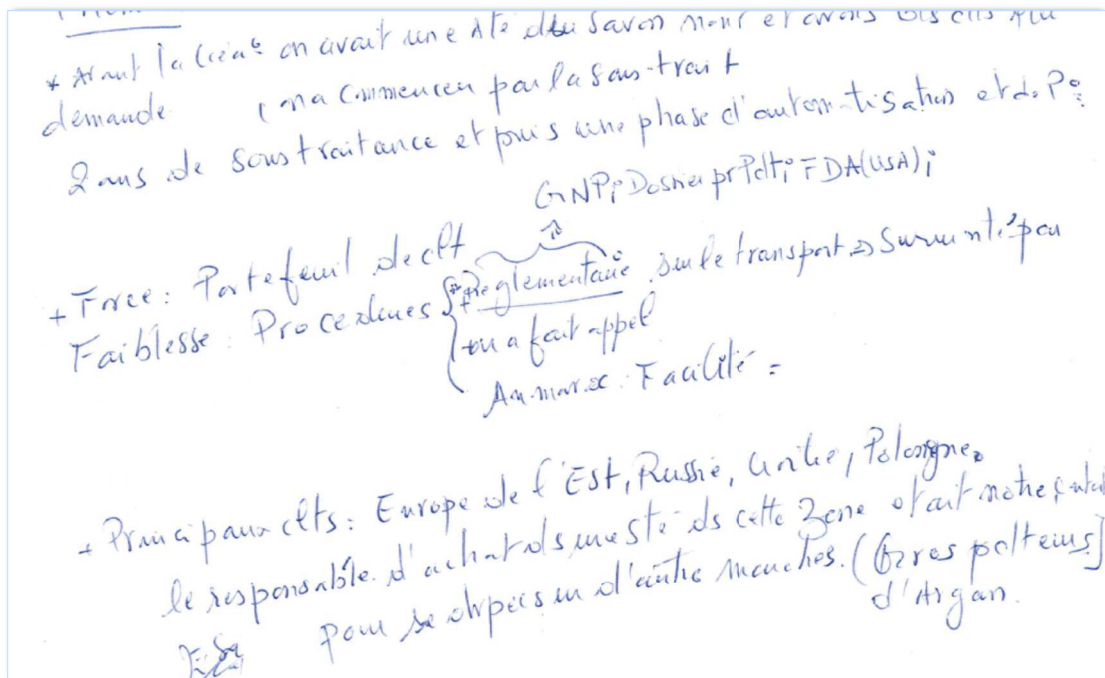 * Avant la Créat° on avait une sté du savon noir et avons
demande (on a commencer par la sous-trait
2 ans de sous traitance et puis une phase d'automatisation et de P°:
GNP; Dosier pr Pdt; FDA(USA);
+ Force: Portefeuil de clt
Faiblesse: Procedures { * Reglementaire sur le transport => Surmonté par
on a fait appel
Au maroc: Facilité =
+ Principaux clts: Europe de l'Est, Russie, Pologne.
le responsable d'achat ds une sté ds cette Zone etait notre
pour se disperser d'autre marchés. (Gres
d'Argan.